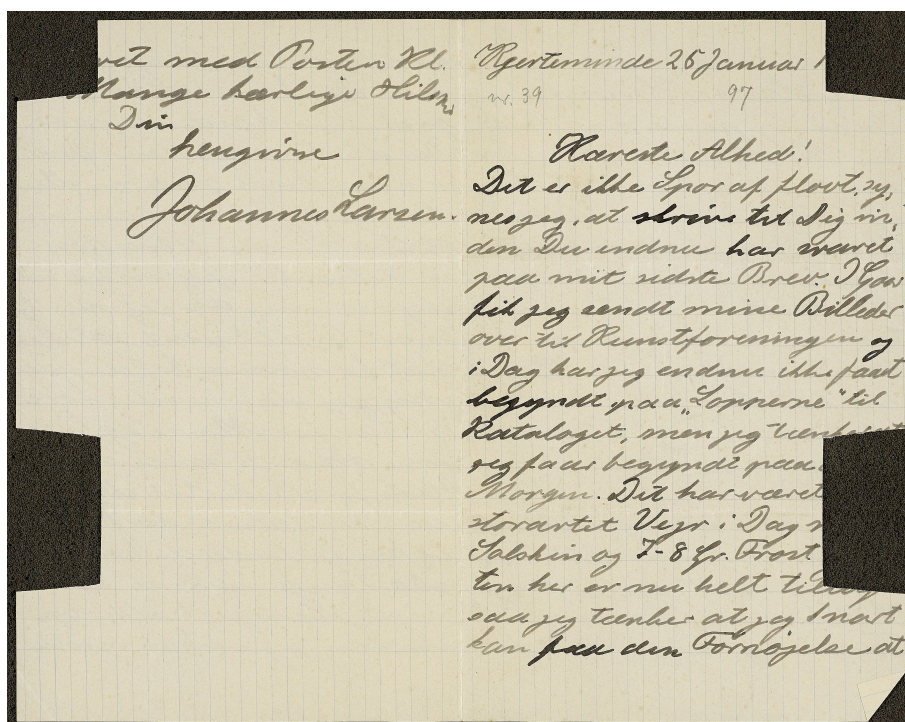 vet med Posten Kl.
Mange kærlige Hils
Din
hengivne
Johannes Larsen.
Kjerteminde 26 Januar
nr. 39
97
Kæreste Alhed!
Det er ikke Spor af flovt, sy,
nes jeg, at skrive til Dig in,
den Du endnu har svaret
paa mit sidste Brev. I Gaar
fik jeg sendt mine Billeder
over til Kunstforeningen og
i Dag har jeg endnu ikke faaet
begyndt paa "Lopperne" til
Kataloget, men jeg
jeg faar begyndt paa
Morgen. Det har været
storartet Vejr i Dag
Solskin og 7-8 Gr. Frost
ten her er nu helt
saa jeg tænker at jeg snart
kan faa den Fornøjelse at